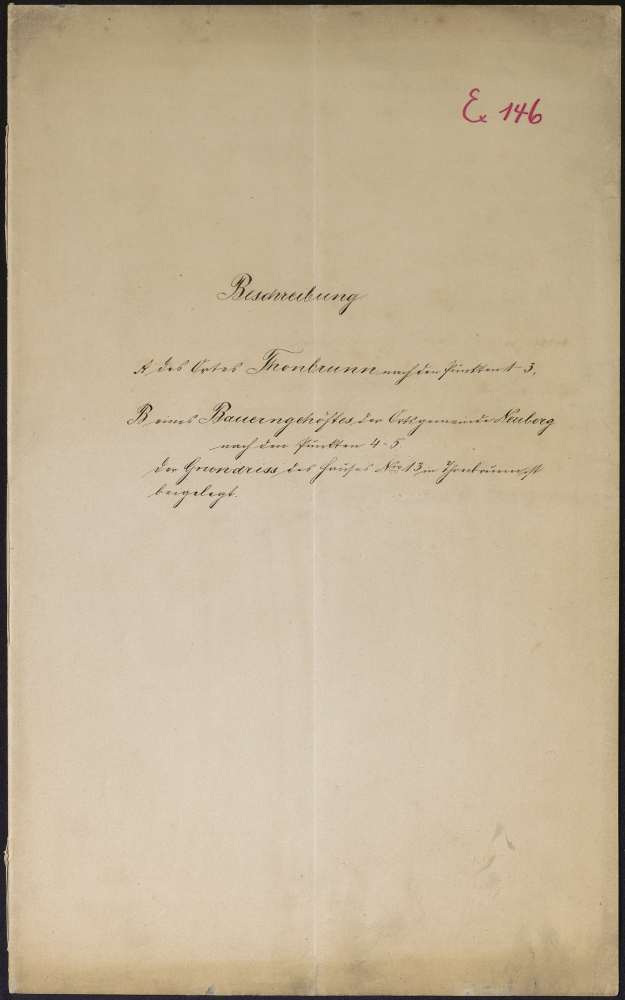 Ex 146
Beschreibung
A, des Ortes Thonbrunn nach den Punkten 1-3,
B eines Bauerngehöftes der Ortsgemeinde Neuberg
nach den Punkten 4-5.
Der Grundriss des Hauses Nro 13 in Thonbrunn ist
beigelegt.